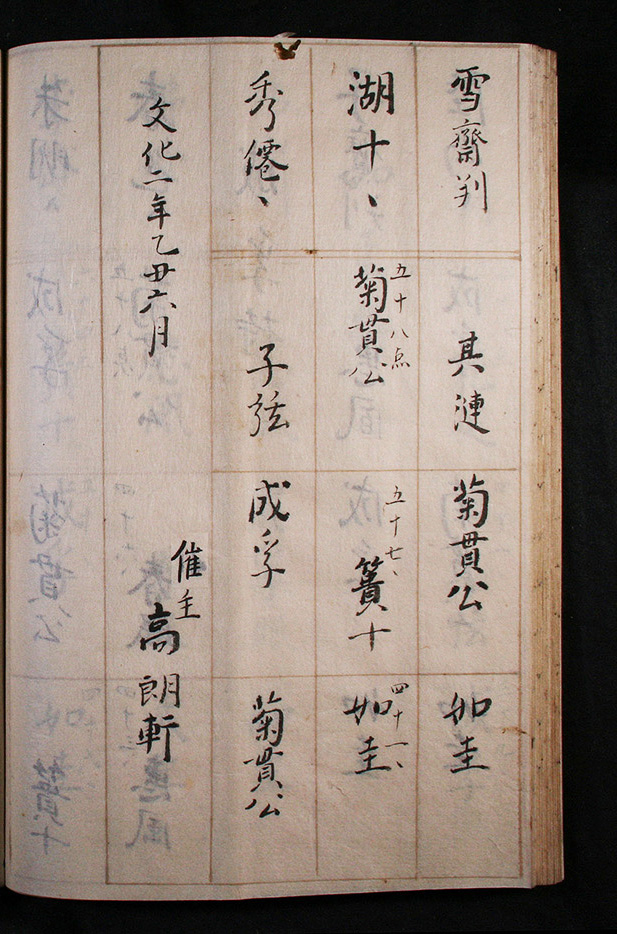 雪齋判
其漣
菊貫公
如圭
湖十、
五十八点
菊貫公
五十七、
簣十
四十一、
如圭
秀僊、
子弦
成孚
菊貫公
文化二年乙丑六月
催主
高朗軒